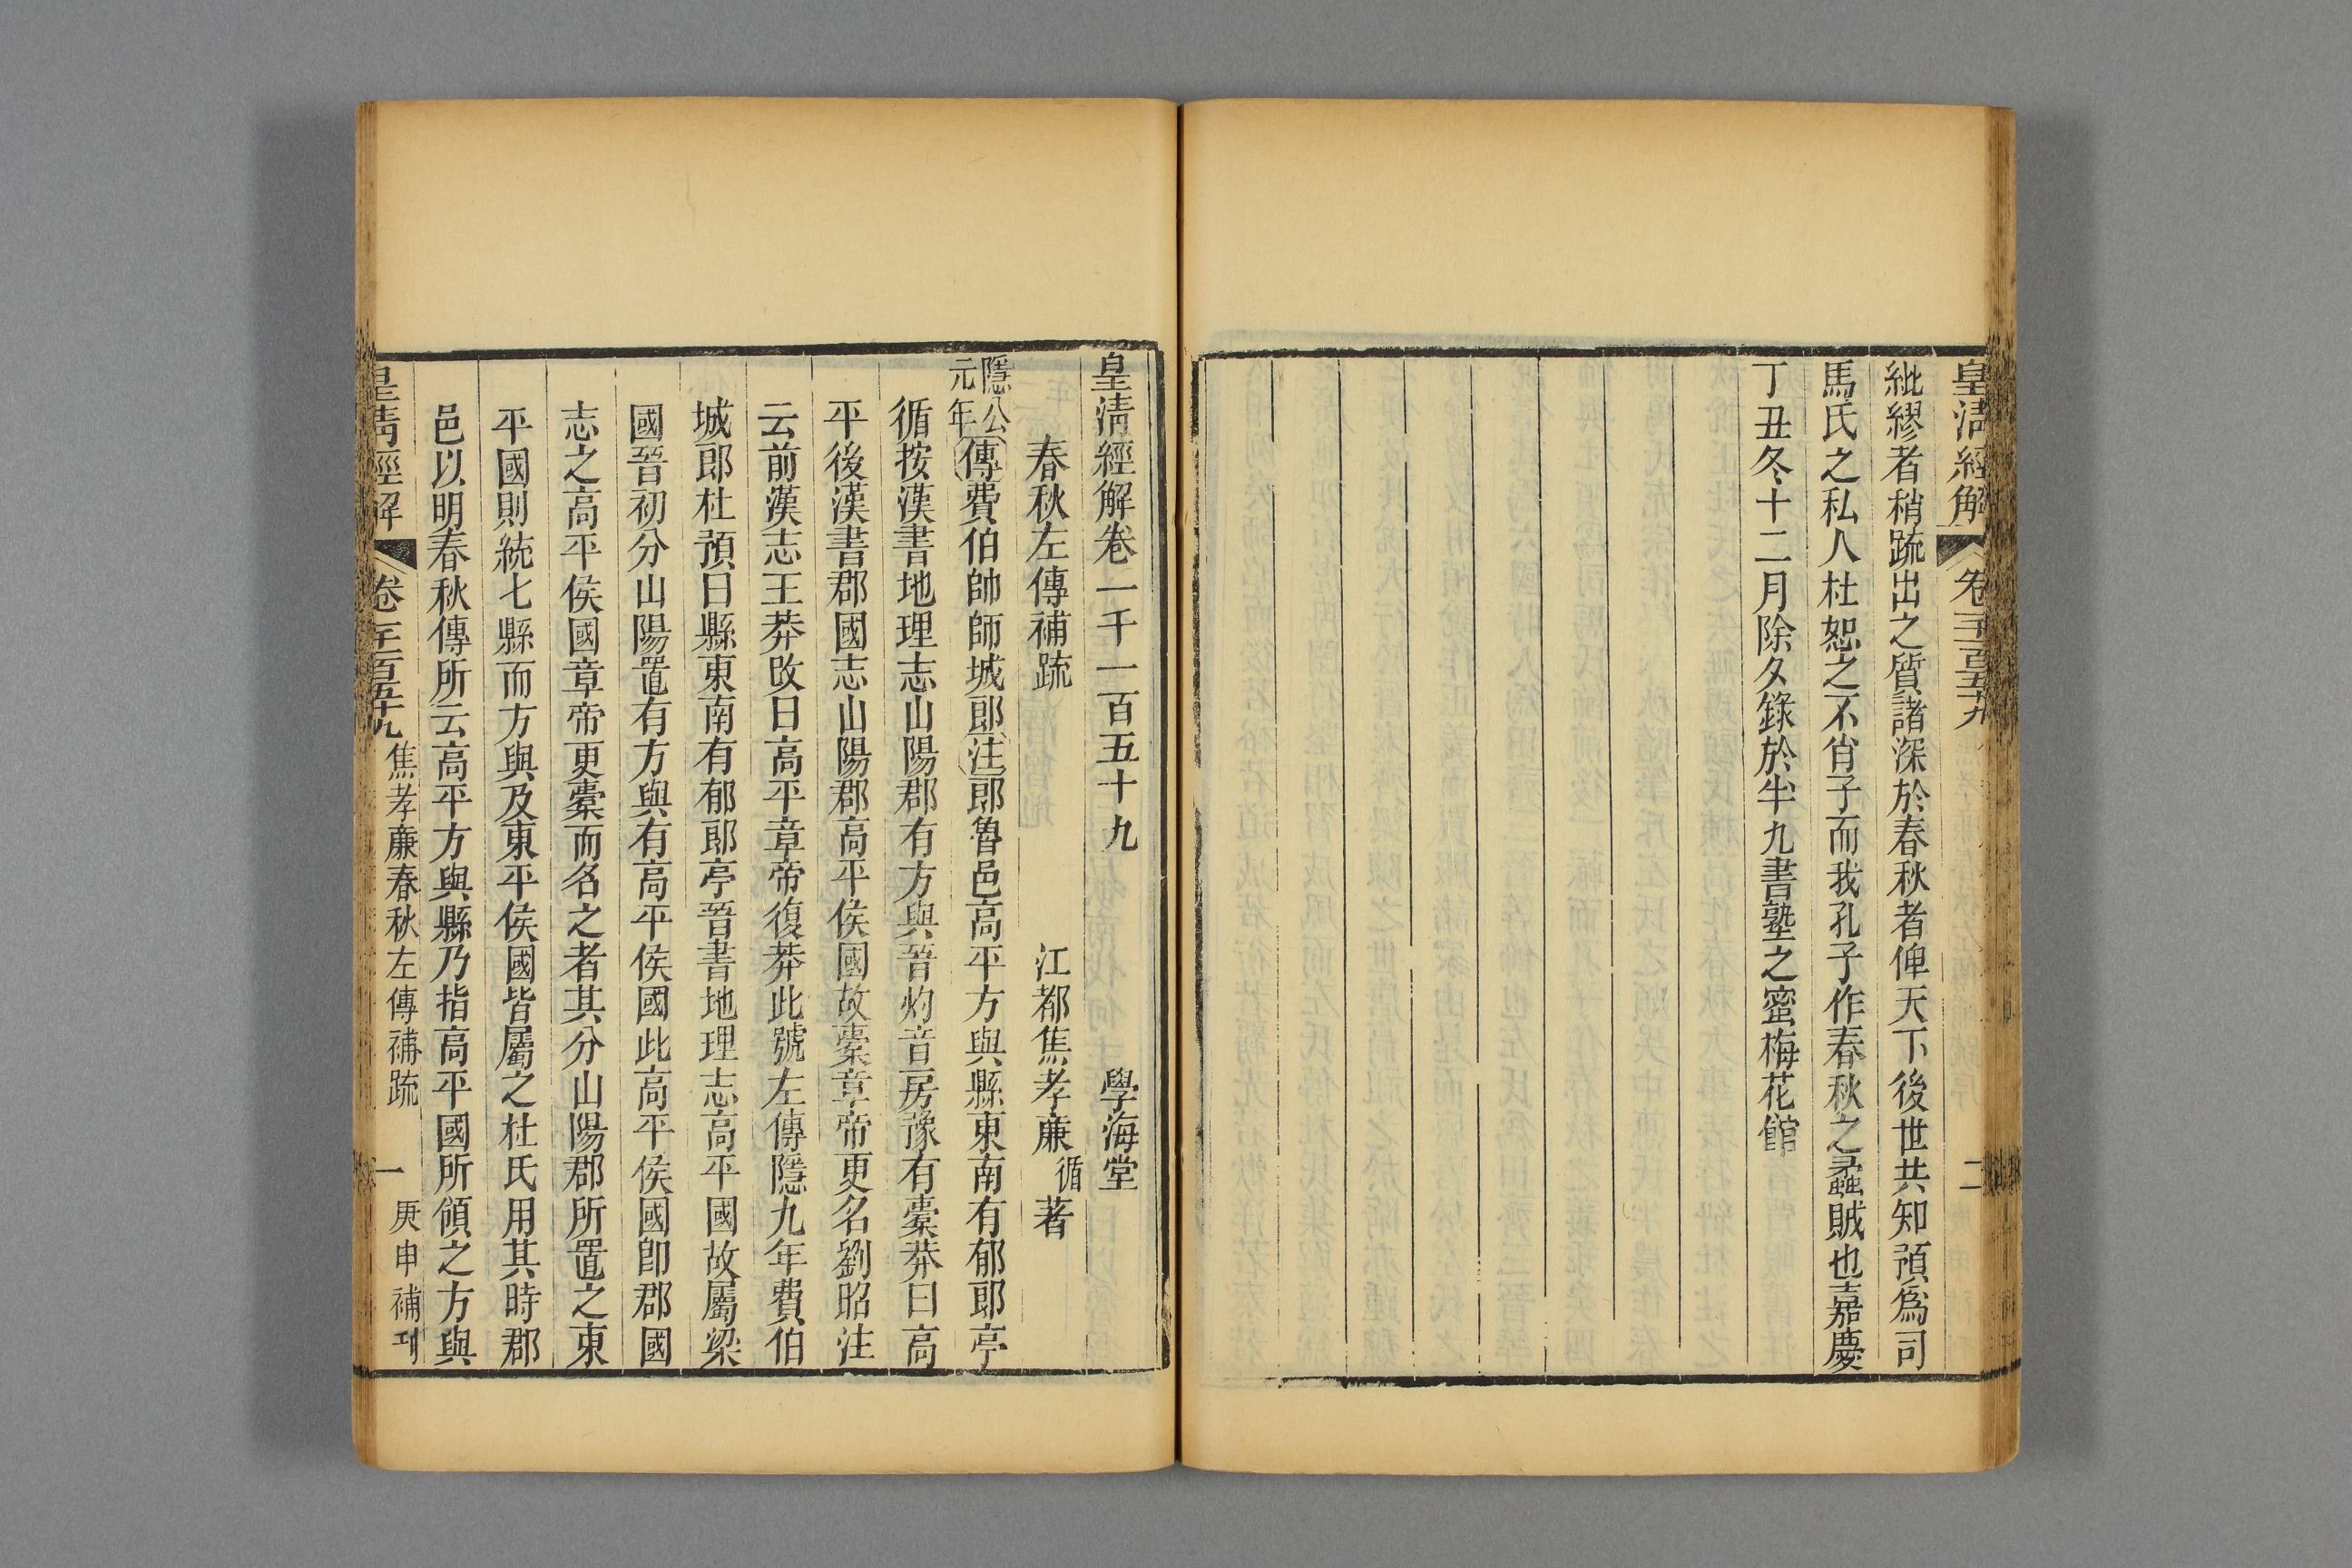 皇清經解 卷一千一百五十九 二
紕繆者稍疏出之質諸深於春秋者俾天下後世共知預爲司
馬氏之私人杜恕之不肖子而我孔子作春秋之蟊賊也嘉慶
丁丑冬十二月除夕錄於半九書塾之蜜梅花館
皇清經解卷一千一百五十九 學海堂
春秋左傳補疏 江都焦孝廉循著
隱公元年傳費伯帥師城郎注郎魯邑高平方與縣東南有郁郎亭
循按漢書地理志山陽郡有方與晉灼音房豫有橐莽曰高
平後漢書郡國志山陽郡高平侯國故橐章帝更名劉昭注
云前漢志王莽改曰高平章帝復莽此號左傳隱九年費伯
城郎杜預曰縣東南有郁郎亭晉書地理志高平國故屬梁
國晉初分山陽置有方與有高平侯國此高平侯國卽郡國
志之高平侯國章帝更橐而名之者其分山陽郡所置之東
平國則統七縣而方與及東平侯國皆屬之杜氏用其時郡
邑以明春秋傳所云高平方與縣乃指高平國所領之方與
皇清經解 卷一千一百五十九 焦孝廉春秋左傳補疏 一 庚申補刊